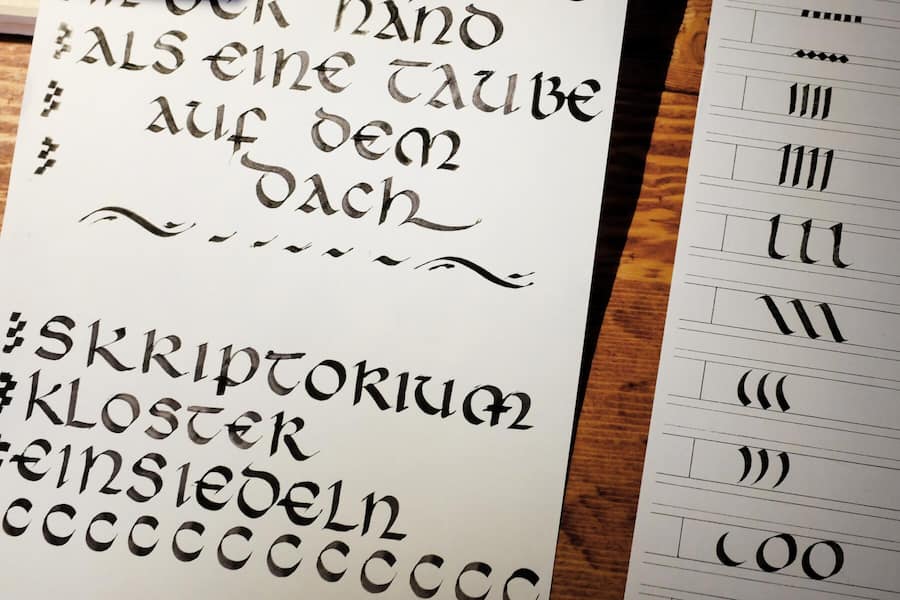 DER HAND
ALS EINE TAUBE
AUF DEM
DACH
SKRIPTORIUM
KLOSTER
EINSIEDELN
CCCCCCCCCCCC